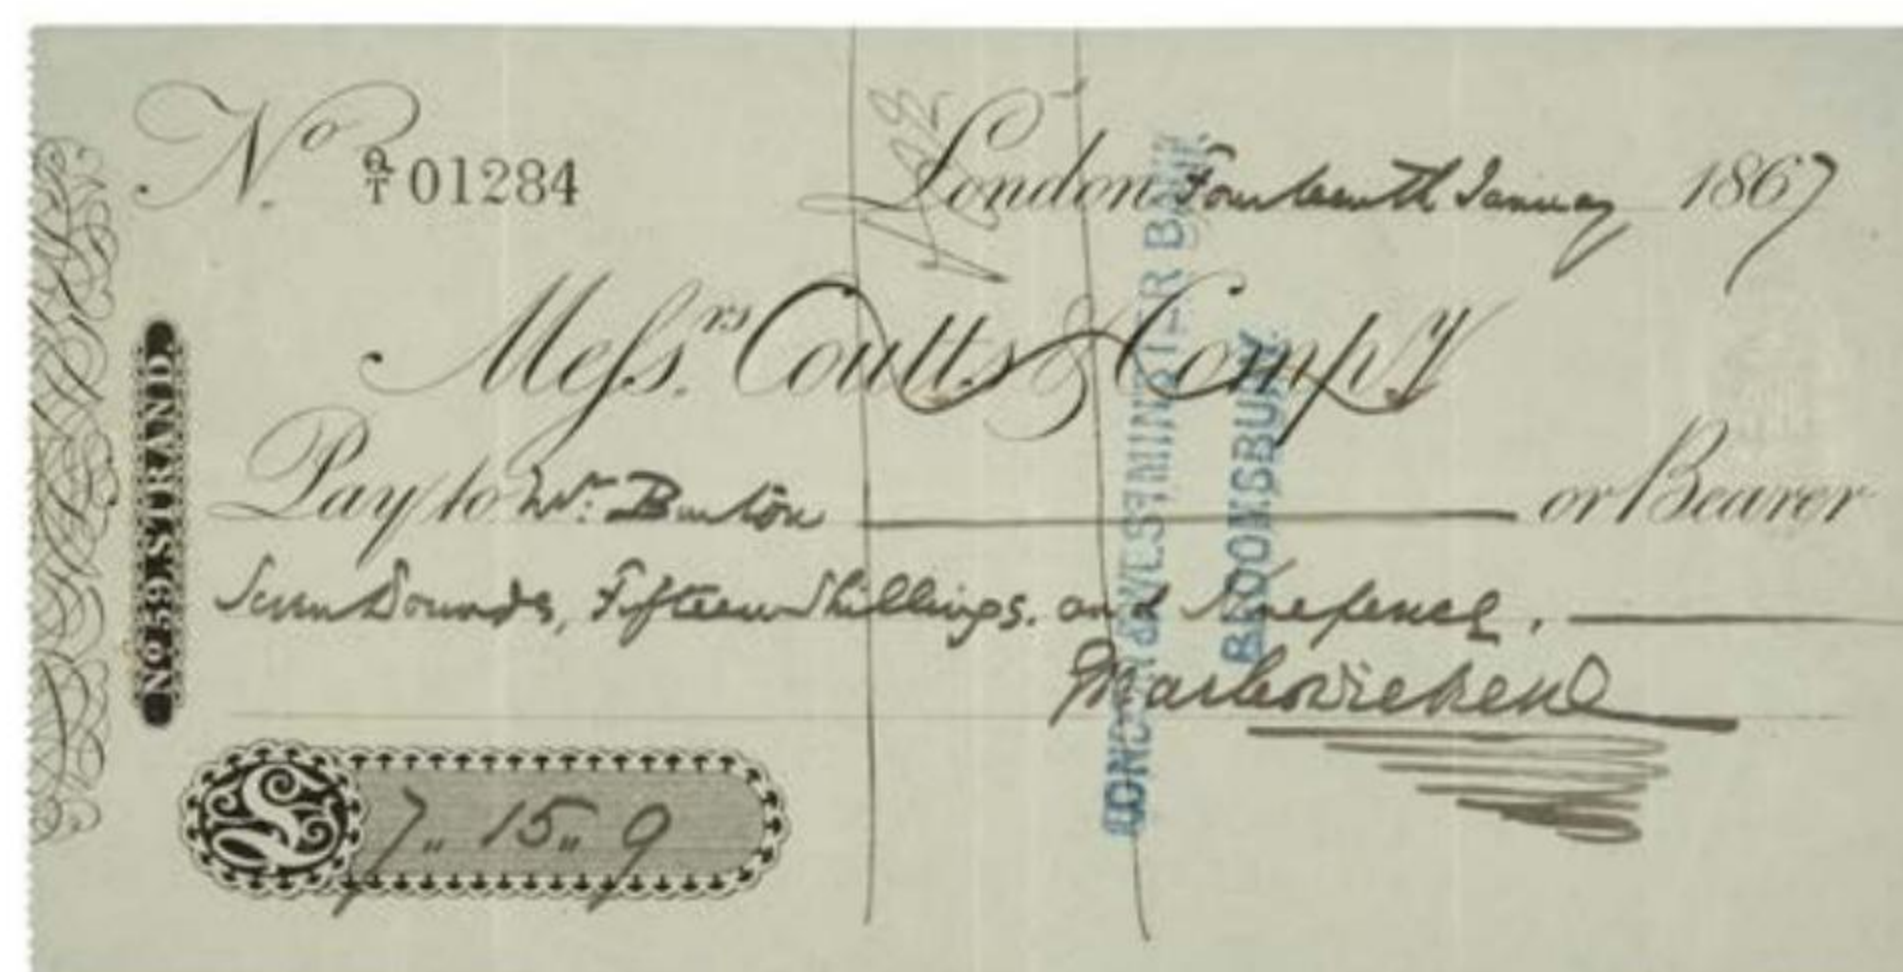 No O/T 01284 London Fourteenth January 1867
Messrs Coutts & Compy
Pay to Mr. Burton or Bearer
Seven Pounds, Fifteen Shillings. and Ninepence.
Charles Dickens
£ 7.. 15.. 9
NO. 59 STRAND.
LONDON & WESTMINSTER BANK
BLOOMSBURY.